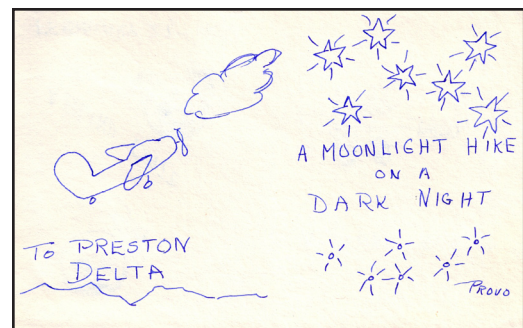 A MOONLIGHT HIKE
ON A
DARK NIGHT
TO PRESTON
DELTA
PROVO